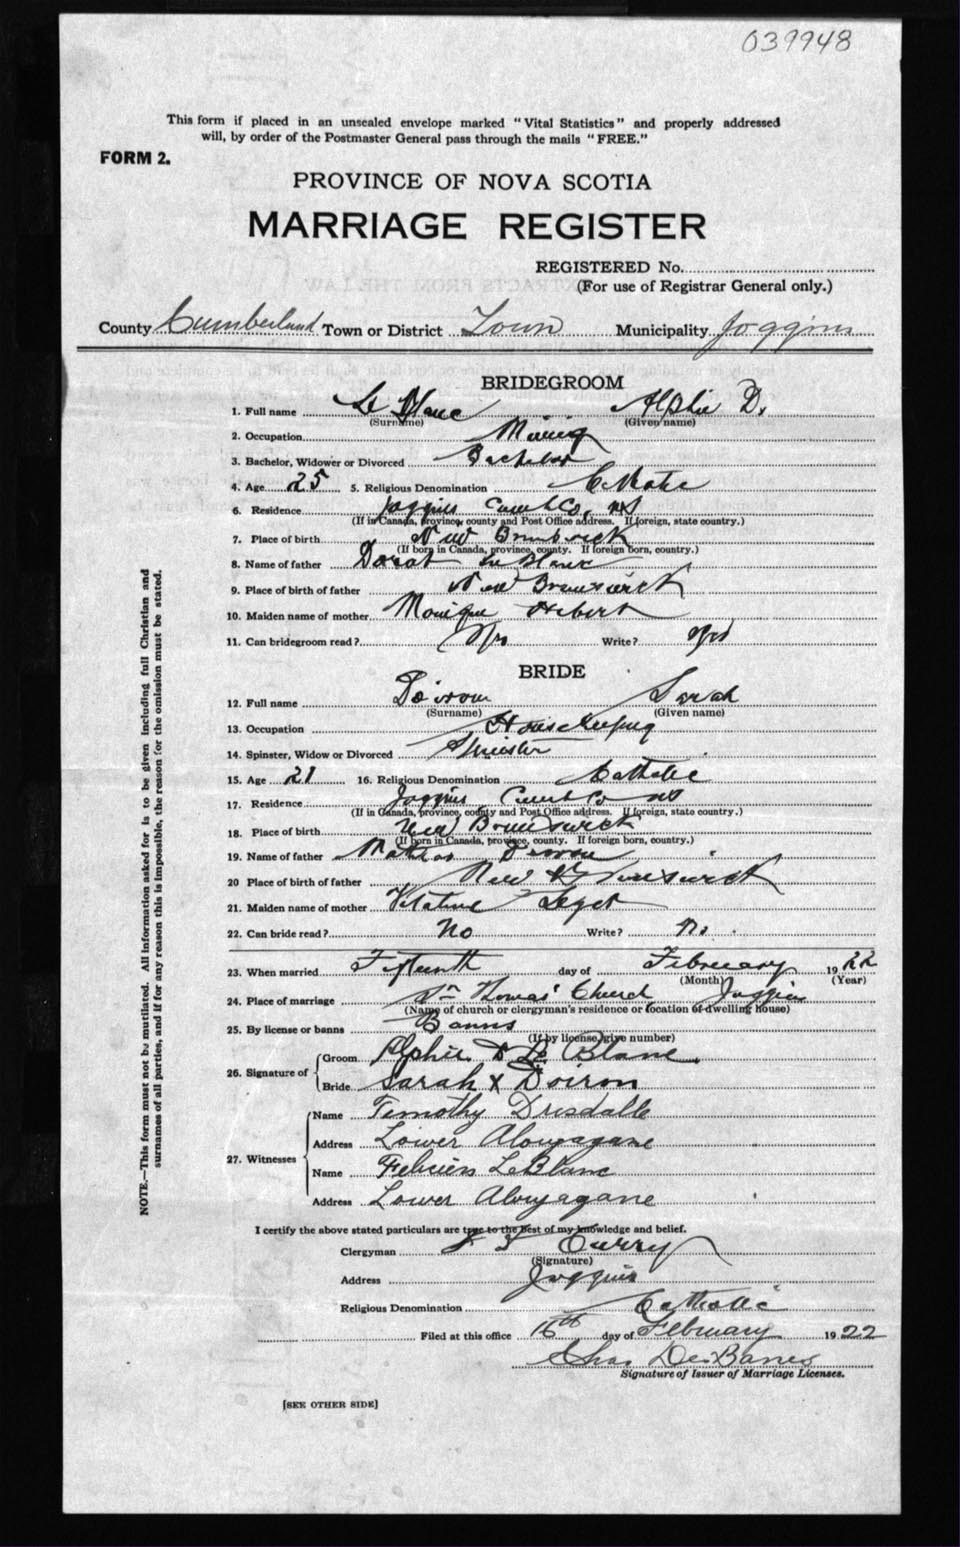 039948
This form if placed in an unsealed envelope marked "Vital Statistics" and properly addressed
will, by order of the Postmaster General pass through the mails "FREE."
FORM 2.
PROVINCE OF NOVA SCOTIA
MARRIAGE REGISTER
REGISTERED No.
(For use of Registrar General only.)
County Cumberland Town or District Town Municipality Joggins
BRIDEGROOM
1. Full name Le Blanc Alphie D.
(Surname) (Given name)
2. Occupation Mining
3. Bachelor, Widower or Divorced Bachelor
4. Age 25 5. Religious Denomination Catholic
6. Residence Joggins Cumb Co. NS
(If in Canada, province, county and Post Office address. If foreign, state country.)
7. Place of birth New Brunswick
(If born in Canada, province, county. If foreign born, country.)
8. Name of father Le Blanc
9. Place of birth of father New Brunswick
10. Maiden name of mother Monique Hebert
11. Can bridegroom read? Yes Write? Yes
BRIDE
12. Full name Doiron Sarah
(Surname) (Given name)
13. Occupation Housekeeping
14. Spinster, Widow or Divorced Spinster
15. Age 21 16. Religious Denomination Catholic
17. Residence Joggins Cumb Co NS
(If in Canada, province, county and Post Office address. If foreign, state country.)
18. Place of birth New Brunswick
(If born in Canada, province, county. If foreign born, country.)
19. Name of father Doiron
20 Place of birth of father New Brunswick
21. Maiden name of mother Leget
22. Can bride read? No Write? No.
23. When married Fifteenth day of February 1922
(Month) (Year)
24. Place of marriage St Thomas' Church Joggins
(Name of church or clergyman's residence or location of dwelling house)
25. By license or banns Banns
(If by license, give number)
26. Signature of Groom Alphie D Le Blanc.
Bride Sarah X Doiron
27. Witnesses Name Timothy Drisdalle
Address Lower
Name Felicien LeBlanc
Address Lower
I certify the above stated particulars are true to the best of my knowledge and belief.
Clergyman Curry
(Signature)
Address Joggins
Religious Denomination Catholic
Filed at this office 16th day of February 1922
Chas DesBarres
Signature of Issuer of Marriage Licenses.
[SEE OTHER SIDE]
NOTE.—This form must not be mutilated. All information asked for is to be given including full Christian and
surnames of all parties, and if for any reason this is impossible, the reason for the omission must be stated.